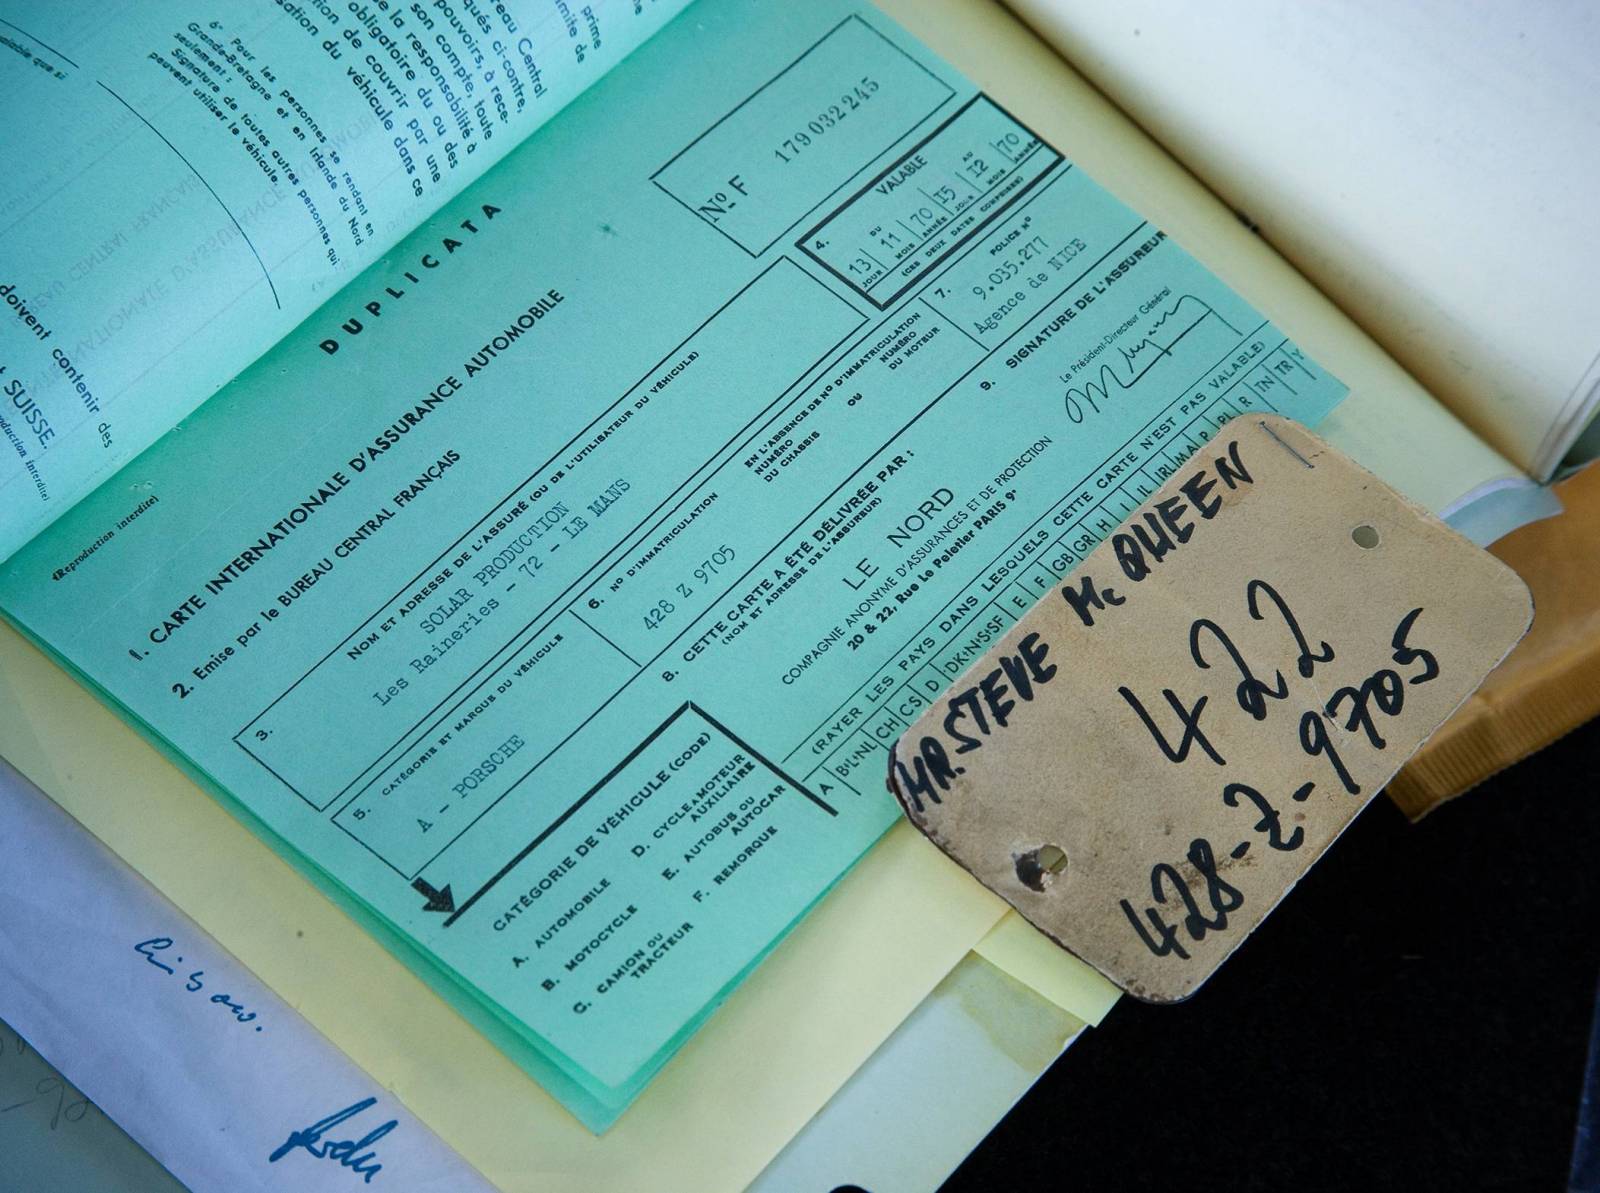 prime
mite de
reau Central
qués ci-contre,
pouvoirs, à rece-
son compte, toute
e la responsabilité à
obligatoire du ou des
tion de couvrir par une
sation du véhicule dans ce
6° Pour les personnes se rendant en
Grande-Bretagne et en Irlande du Nord
seulement :
Signature de toutes autres personnes qui
peuvent utiliser le véhicule.
doivent contenir des
SUISSE.
(Reproduction interdite)
DUPLICATA
Nº F 179032245
1. CARTE INTERNATIONALE D'ASSURANCE AUTOMOBILE
2. Emise par le BUREAU CENTRAL FRANÇAIS
3. NOM ET ADRESSE DE L'ASSURÉ (OU DE L'UTILISATEUR DU VÉHICULE)
SOLAR PRODUCTION
Les Raineries - 72 - LE MANS
4. VALABLE
DU AU
13 11 70 15 12 70
JOUR MOIS ANNÉE JOUR MOIS ANNÉE
(CES DEUX DATES COMPRISES)
5. CATÉGORIE ET MARQUE DU VÉHICULE
A - PORSCHE
6. Nº D'IMMATRICULATION
428 Z 9705
EN L'ABSENCE DE Nº D'IMMATRICULATION
NUMÉRO DU CHASSIS OU NUMÉRO DU MOTEUR
7. POLICE Nº
9.035.277
Agence de NICE
8. CETTE CARTE A ÉTÉ DÉLIVRÉE PAR :
(NOM ET ADRESSE DE L'ASSUREUR)
LE NORD
COMPAGNIE ANONYME D'ASSURANCES ET DE PROTECTION
20 & 22, Rue Le Peletier PARIS 9e
9. SIGNATURE DE L'ASSUREUR
Le Président-Directeur Général
(RAYER LES PAYS DANS LESQUELS CETTE CARTE N'EST PAS VALABLE)
A B·L·NL CH CS D DK·N·S·SF E F GB GR H I IL IRL MA P PL R TN TR Y
CATÉGORIE DE VÉHICULE (CODE)
A. AUTOMOBILE
B. MOTOCYCLE
C. CAMION OU TRACTEUR
D. CYCLE A MOTEUR AUXILIAIRE
E. AUTOBUS OU AUTOCAR
F. REMORQUE
MR. STEVE Mc QUEEN
422
428-Z-9705